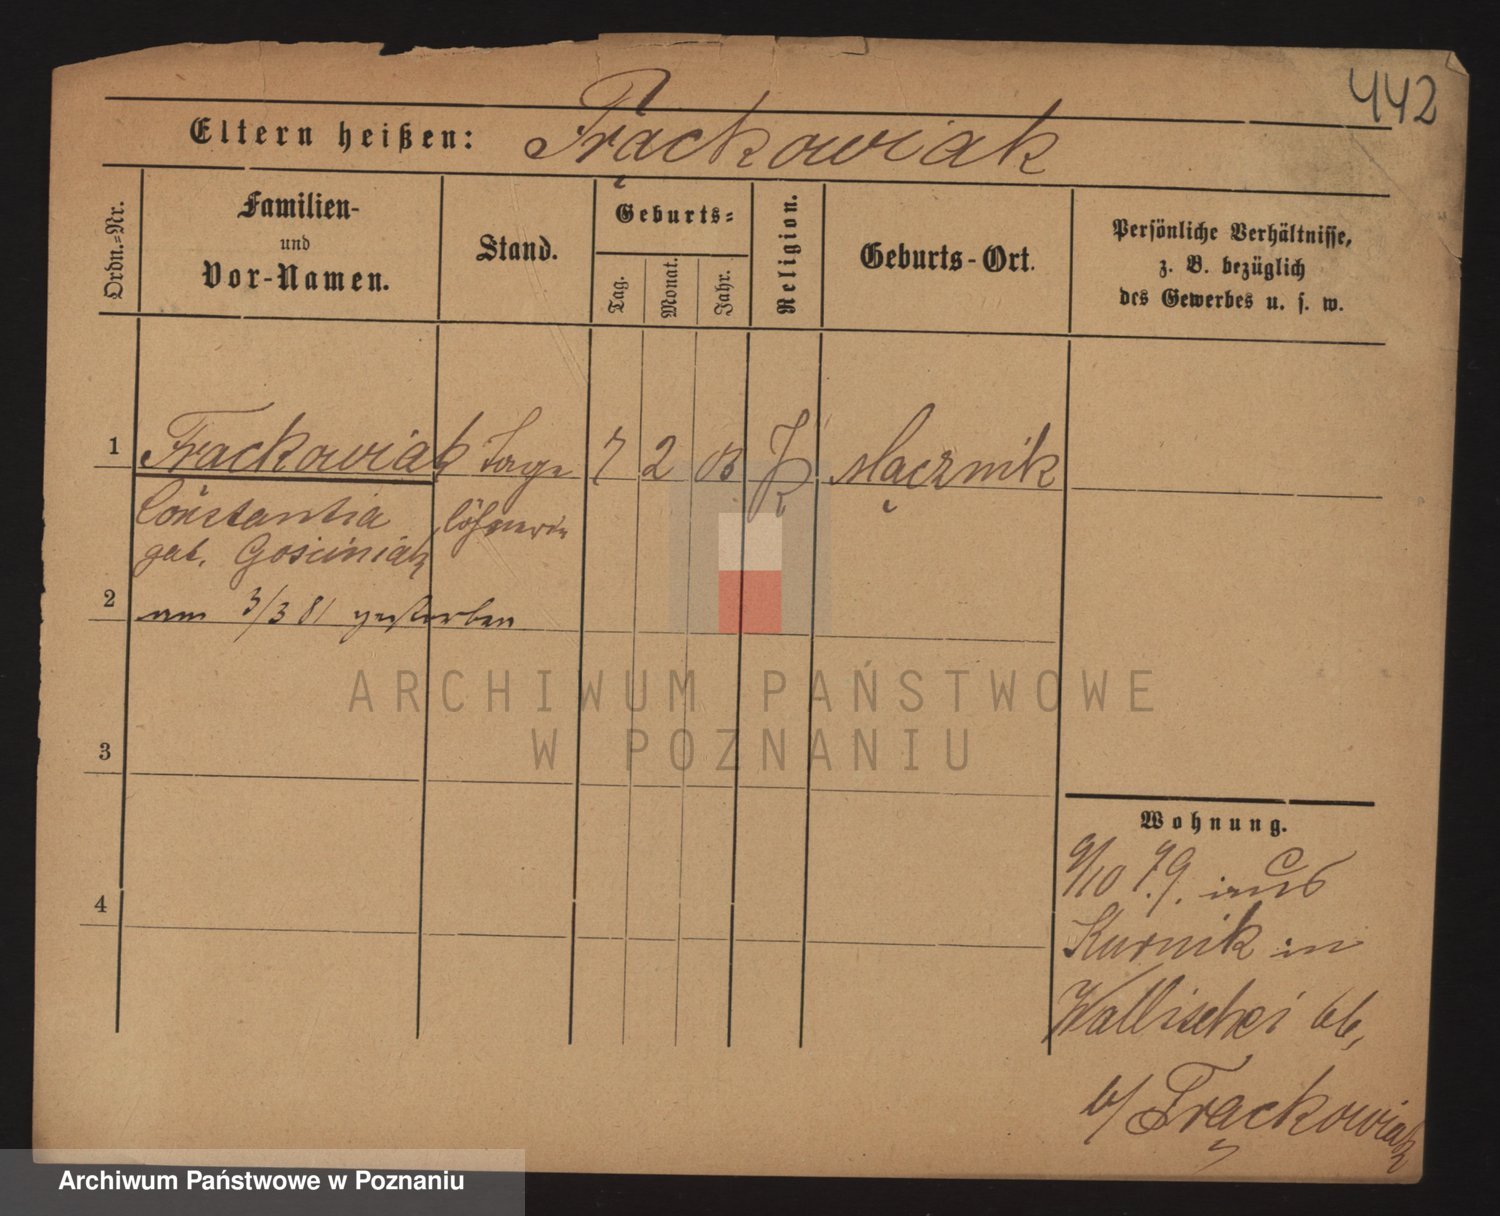 442
Eltern heißen: Frąckowiak
Ordn.=Nr.
Familien-
und
Vor-Namen.
Stand.
Geburts=
Tag.
Monat.
Jahr.
Religion.
Geburts-Ort.
Persönliche Verhältnisse,
z. B. bezüglich
des Gewerbes u. s. w.
1 Frackowiak Tage 7 2 03 Mącznik
Constantia löhnerin
geb. Gosciniak
2 am 3/3 81 gestorben
ARCHIWUM PAŃSTWOWE
W POZNANIU
3
4
Wohnung.
9/10 79. aus
Kurnik in
Wallischei 66,
b/ Frąckowiak
Archiwum Państwowe w Poznaniu